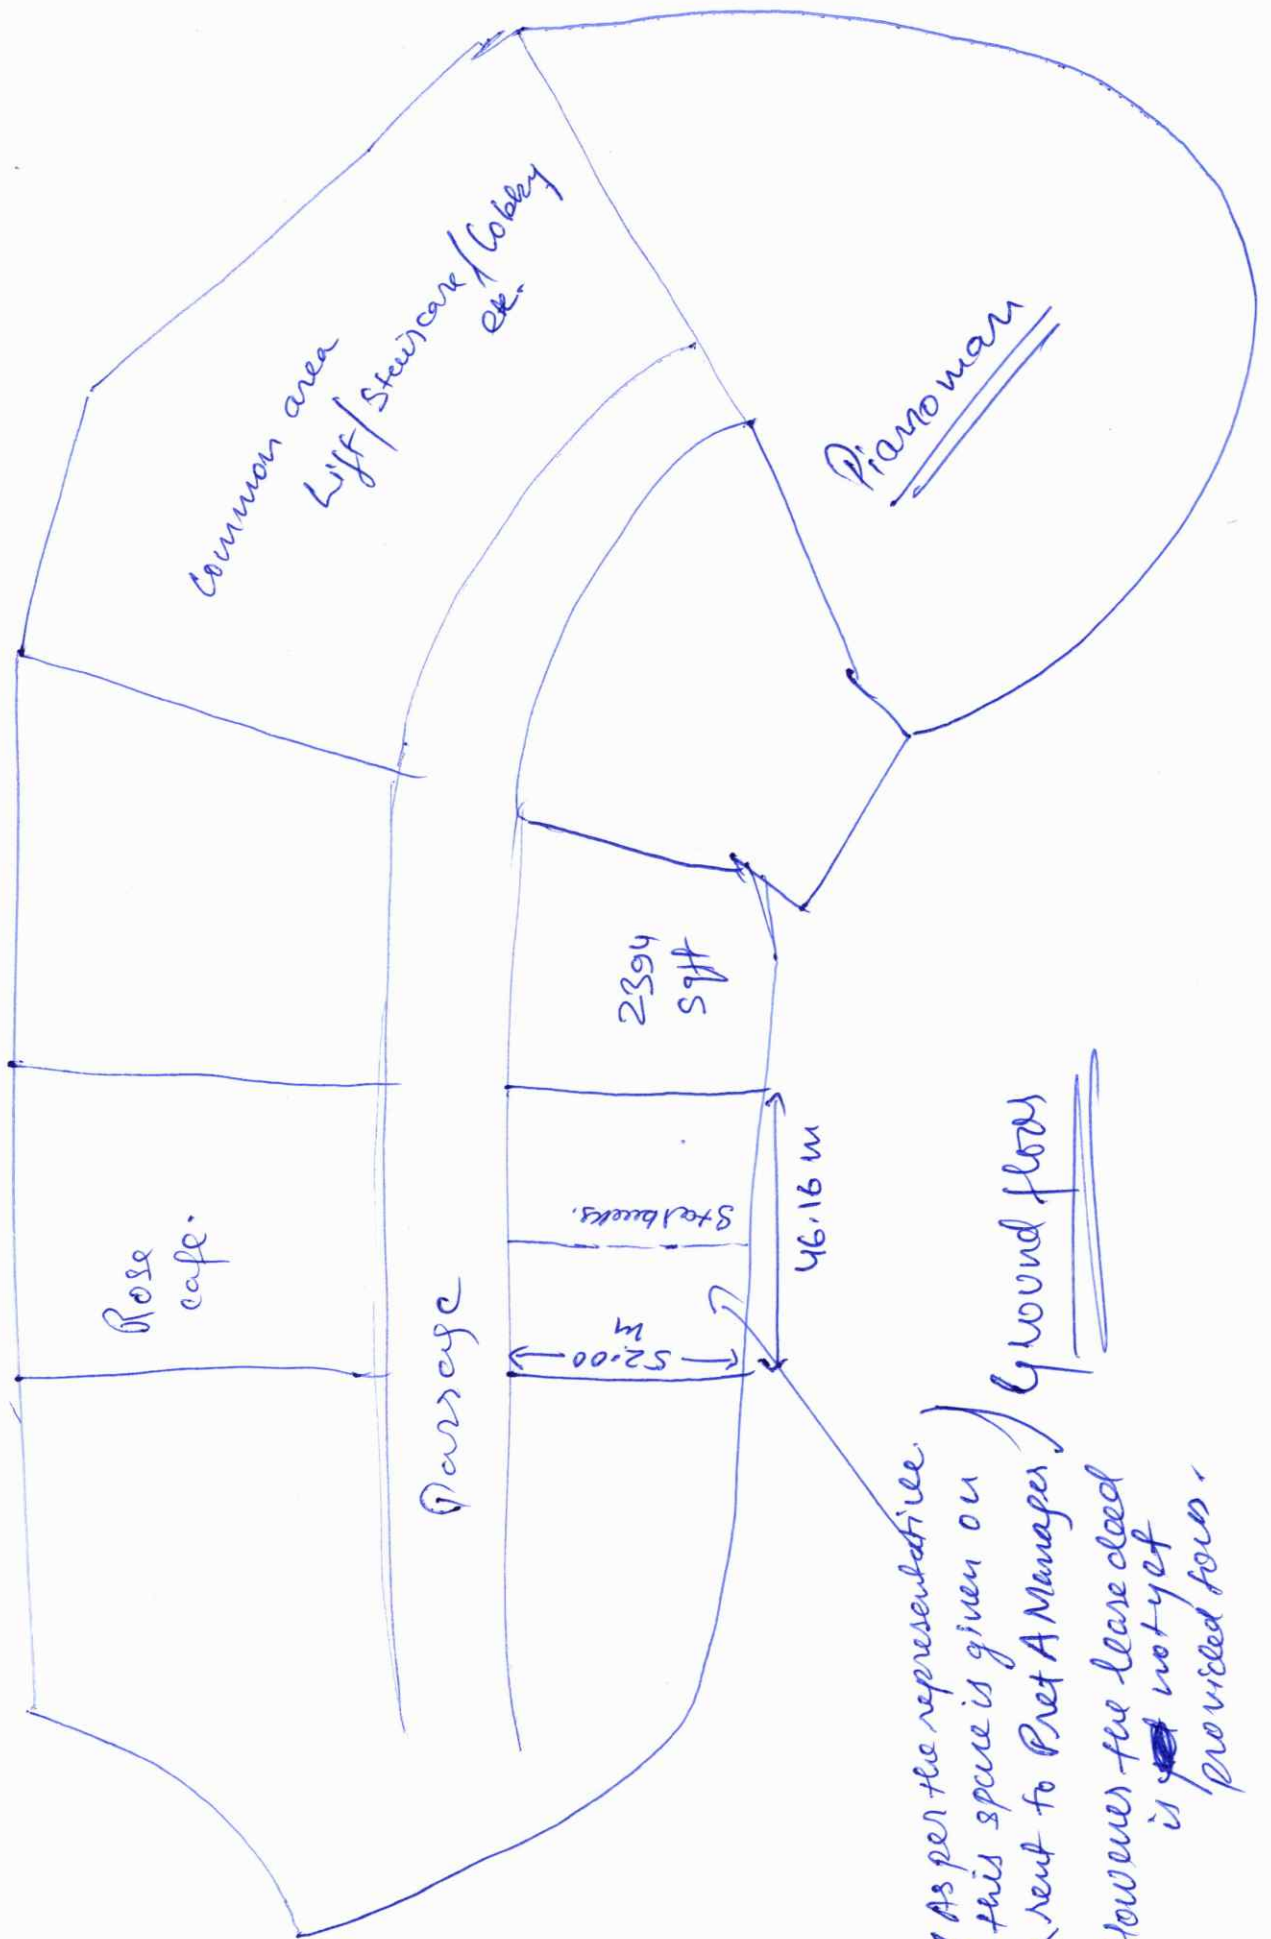 Common area
Lift/Staircase/Lobby
etc.
Pianoman
Rose
cafe.
Passage
2394
Sqft
Starbucks.
52.00
M
46.16 M
Ground floor
As per the representative
this space is given on
rent to Pret A Manager
However the lease deed
is not yet
provided for us.